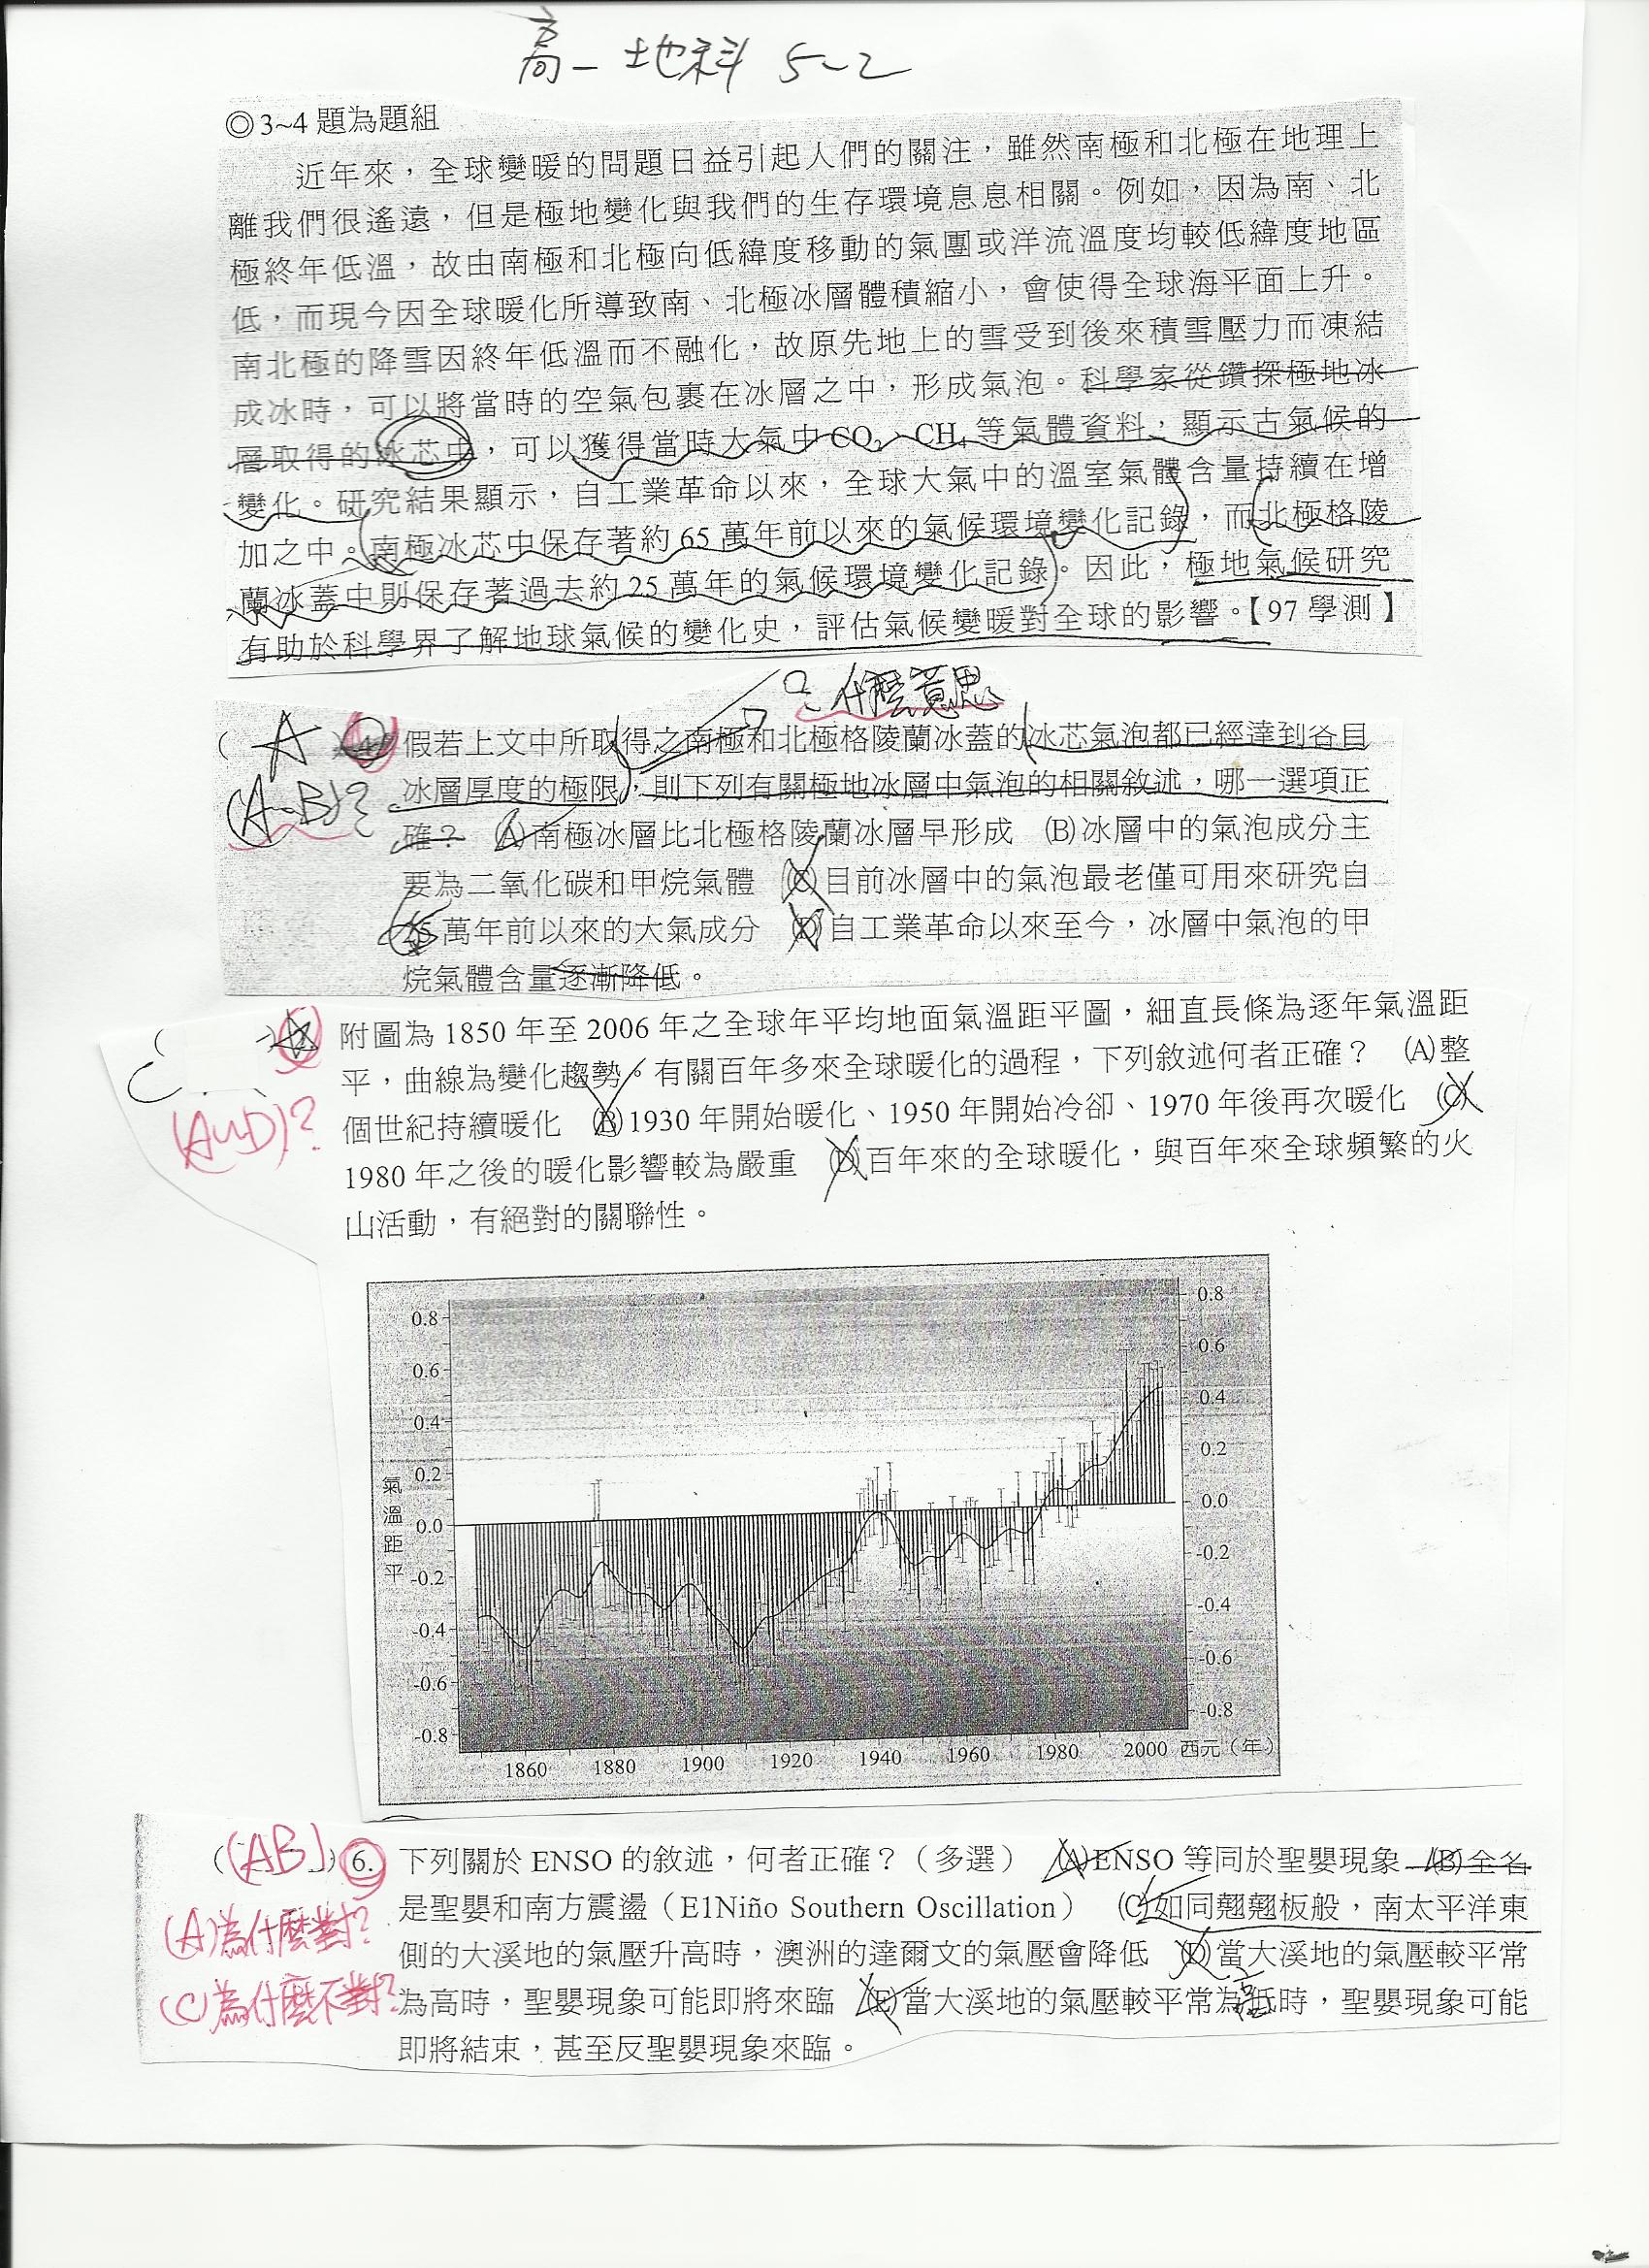 高一 地科 5-2
◎3~4 題為題組
近年來，全球變暖的問題日益引起人們的關注，雖然南極和北極在地理上
離我們很遙遠，但是極地變化與我們的生存環境息息相關。例如，因為南、北
極終年低溫，故由南極和北極向低緯度移動的氣團或洋流溫度均較低緯度地區
低，而現今因全球暖化所導致南、北極冰層體積縮小，會使得全球海平面上升。
南北極的降雪因終年低溫而不融化，故原先地上的雪受到後來積雪壓力而凍結
成冰時，可以將當時的空氣包裹在冰層之中，形成氣泡。科學家從鑽探極地冰
層取得的冰芯中，可以獲得當時大氣中CO₂、CH₄等氣體資料，顯示古氣候的
變化。研究結果顯示，自工業革命以來，全球大氣中的溫室氣體含量持續在增
加之中。南極冰芯中保存著約65萬年前以來的氣候環境變化記錄，而北極格陵
蘭冰蓋中則保存著過去約25萬年的氣候環境變化記錄。因此，極地氣候研究
有助於科學界了解地球氣候的變化史，評估氣候變暖對全球的影響。【97學測】
Q: 什麼意思
( A ) 假若上文中所取得之南極和北極格陵蘭冰蓋的冰芯氣泡都已經達到各自
(A~B)? 冰層厚度的極限，則下列有關極地冰層中氣泡的相關敘述，哪一選項正
確？ (A)南極冰層比北極格陵蘭冰層早形成 (B)冰層中的氣泡成分主
要為二氧化碳和甲烷氣體 (C)目前冰層中的氣泡最老僅可用來研究自
25萬年前以來的大氣成分 (D)自工業革命以來至今，冰層中氣泡的甲
烷氣體含量逐漸降低。
附圖為1850年至2006年之全球年平均地面氣溫距平圖，細直長條為逐年氣溫距
平，曲線為變化趨勢。有關百年多來全球暖化的過程，下列敘述何者正確？ (A)整
個世紀持續暖化 (B)1930年開始暖化、1950年開始冷卻、1970年後再次暖化 (C)
(A~D)?
1980年之後的暖化影響較為嚴重 (D)百年來的全球暖化，與百年來全球頻繁的火
山活動，有絕對的關聯性。
0.8 0.8
0.6 0.6
0.4 0.4
0.2 0.2
0.0 0.0
-0.2 -0.2
-0.4 -0.4
-0.6 -0.6
-0.8 -0.8
氣溫距平
1860 1880 1900 1920 1940 1960 1980 2000 西元（年）
( (AB) ) 6. 下列關於ENSO的敘述，何者正確？（多選） (A)ENSO等同於聖嬰現象 (B)全名
是聖嬰和南方震盪（E1Niño Southern Oscillation） (C)如同翹翹板般，南太平洋東
(A)為什麼對?
側的大溪地的氣壓升高時，澳洲的達爾文的氣壓會降低 (D)當大溪地的氣壓較平常
(C)為什麼不對?
為高時，聖嬰現象可能即將來臨 (E)當大溪地的氣壓較平常為低時，聖嬰現象可能
高
即將結束，甚至反聖嬰現象來臨。